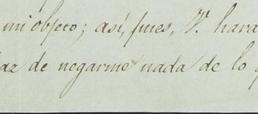 mi objeto; así, pues, V. hara
az de negarme nada de lo